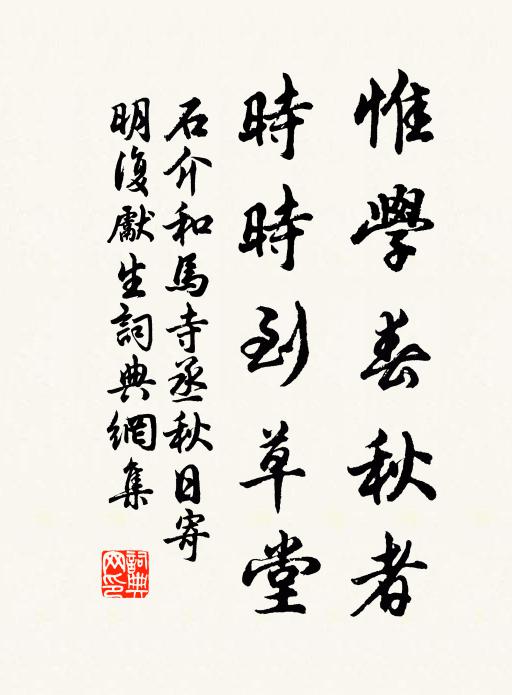 惟學春秋者
時時到草堂
石介和馬寺丞秋日寄
明復獻生詞典網集
詞典網印